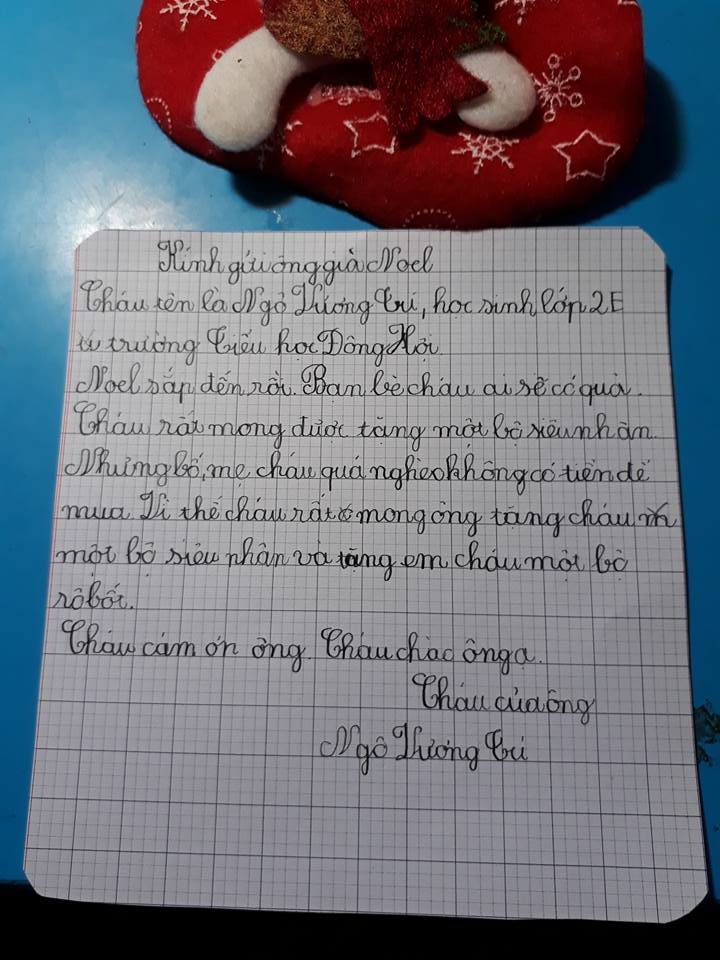 Kính gửi ông già Noel
Cháu tên là Ngô Vương Trí, học sinh lớp 2E
từ trường Tiểu học Đông Hội
Noel sắp đến rồi. Bạn bè cháu ai sẽ có quà.
Cháu rất mong được tặng một bộ siêu nhân.
Nhưng bố, mẹ cháu quá nghèo không có tiền để
mua. Vì thế cháu rất mong ông tặng cháu
một bộ siêu nhân và tặng em cháu một bộ
rôbốt.
Cháu cảm ơn ông. Cháu chào ông ạ.
Cháu của ông
Ngô Vương Trí